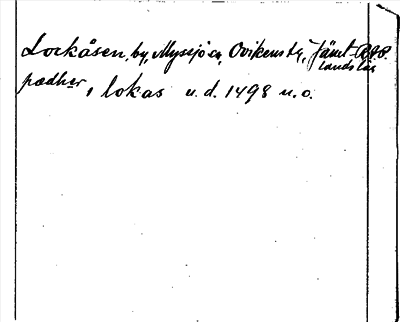 Lockåsen, by, Myssjö sn, Ovikens tg, Jämt-
lands län
pædher, lokas u.d. 1498 u.o.